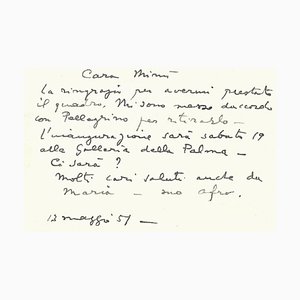 Cara Mimì
La ringrazio per avermi prestato
il quadro. Mi sono messo d'accordo
con Pellegrino per ritirarlo –
L'inaugurazione sarà sabato 19
alla Galleria della Palma –
Ci sarà?
Molti cari saluti anche da
Maria – suo Afro.
13 maggio 51 –